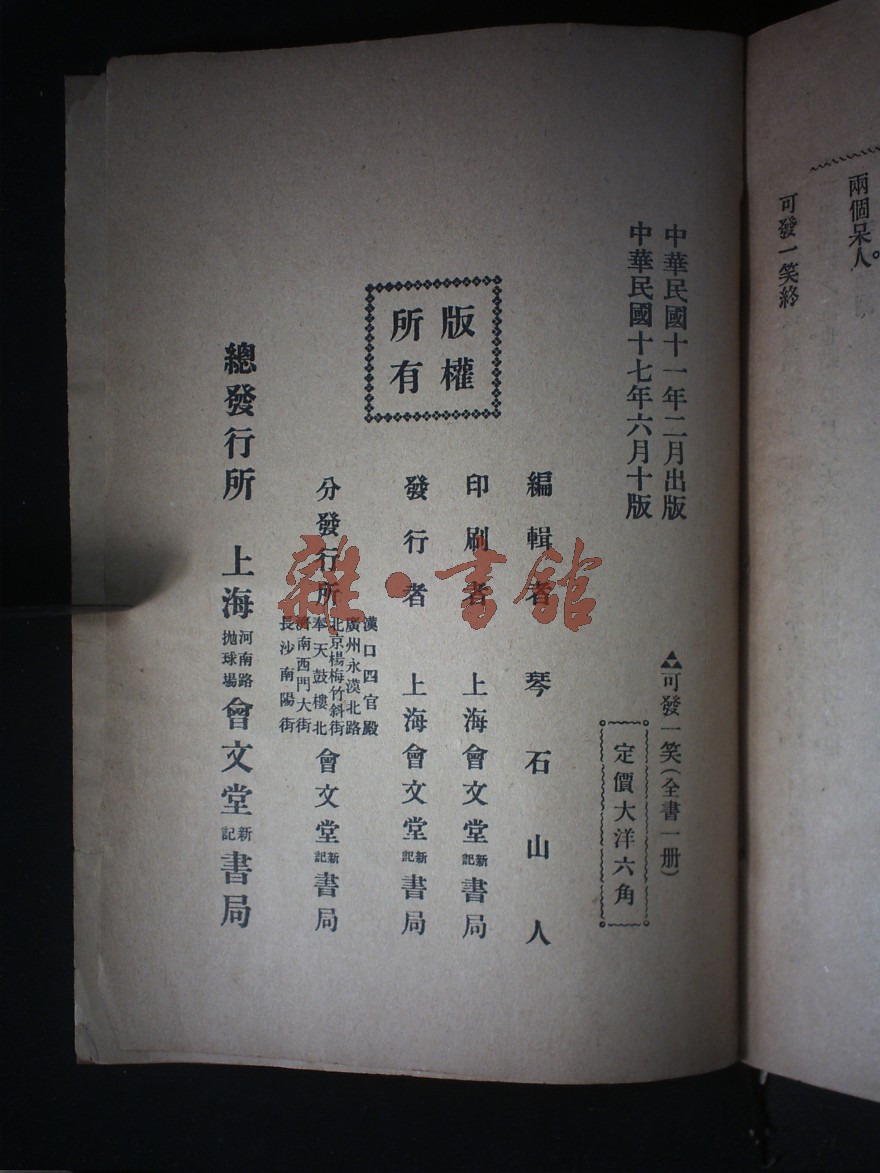 兩個呆人。
可發一笑終
中華民國十一年二月出版
中華民國十七年六月十版
可發一笑(全書一册)
定價大洋六角
版權
所有
編輯者 琴石山人
印刷者 上海會文堂新記書局
發行者 上海會文堂新記書局
分發行所
漢口四官殿
廣州永漢北路
北京楊梅竹斜街
奉天鼓樓北
濟南西門大街
長沙南陽街
會文堂新記書局
總發行所 上海河南路拋球場會文堂新記書局
雜·書館